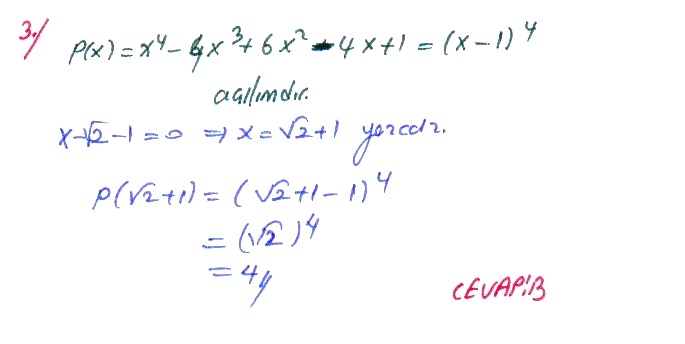 3./ P(x) = x⁴ - 4x³ + 6x² - 4x + 1 = (x - 1)⁴
açılımdır.
x - √2 - 1 = 0 ⇒ x = √2 + 1 yazılır.
P(√2 + 1) = (√2 + 1 - 1)⁴
= (√2)⁴
= 4//
CEVAP: B